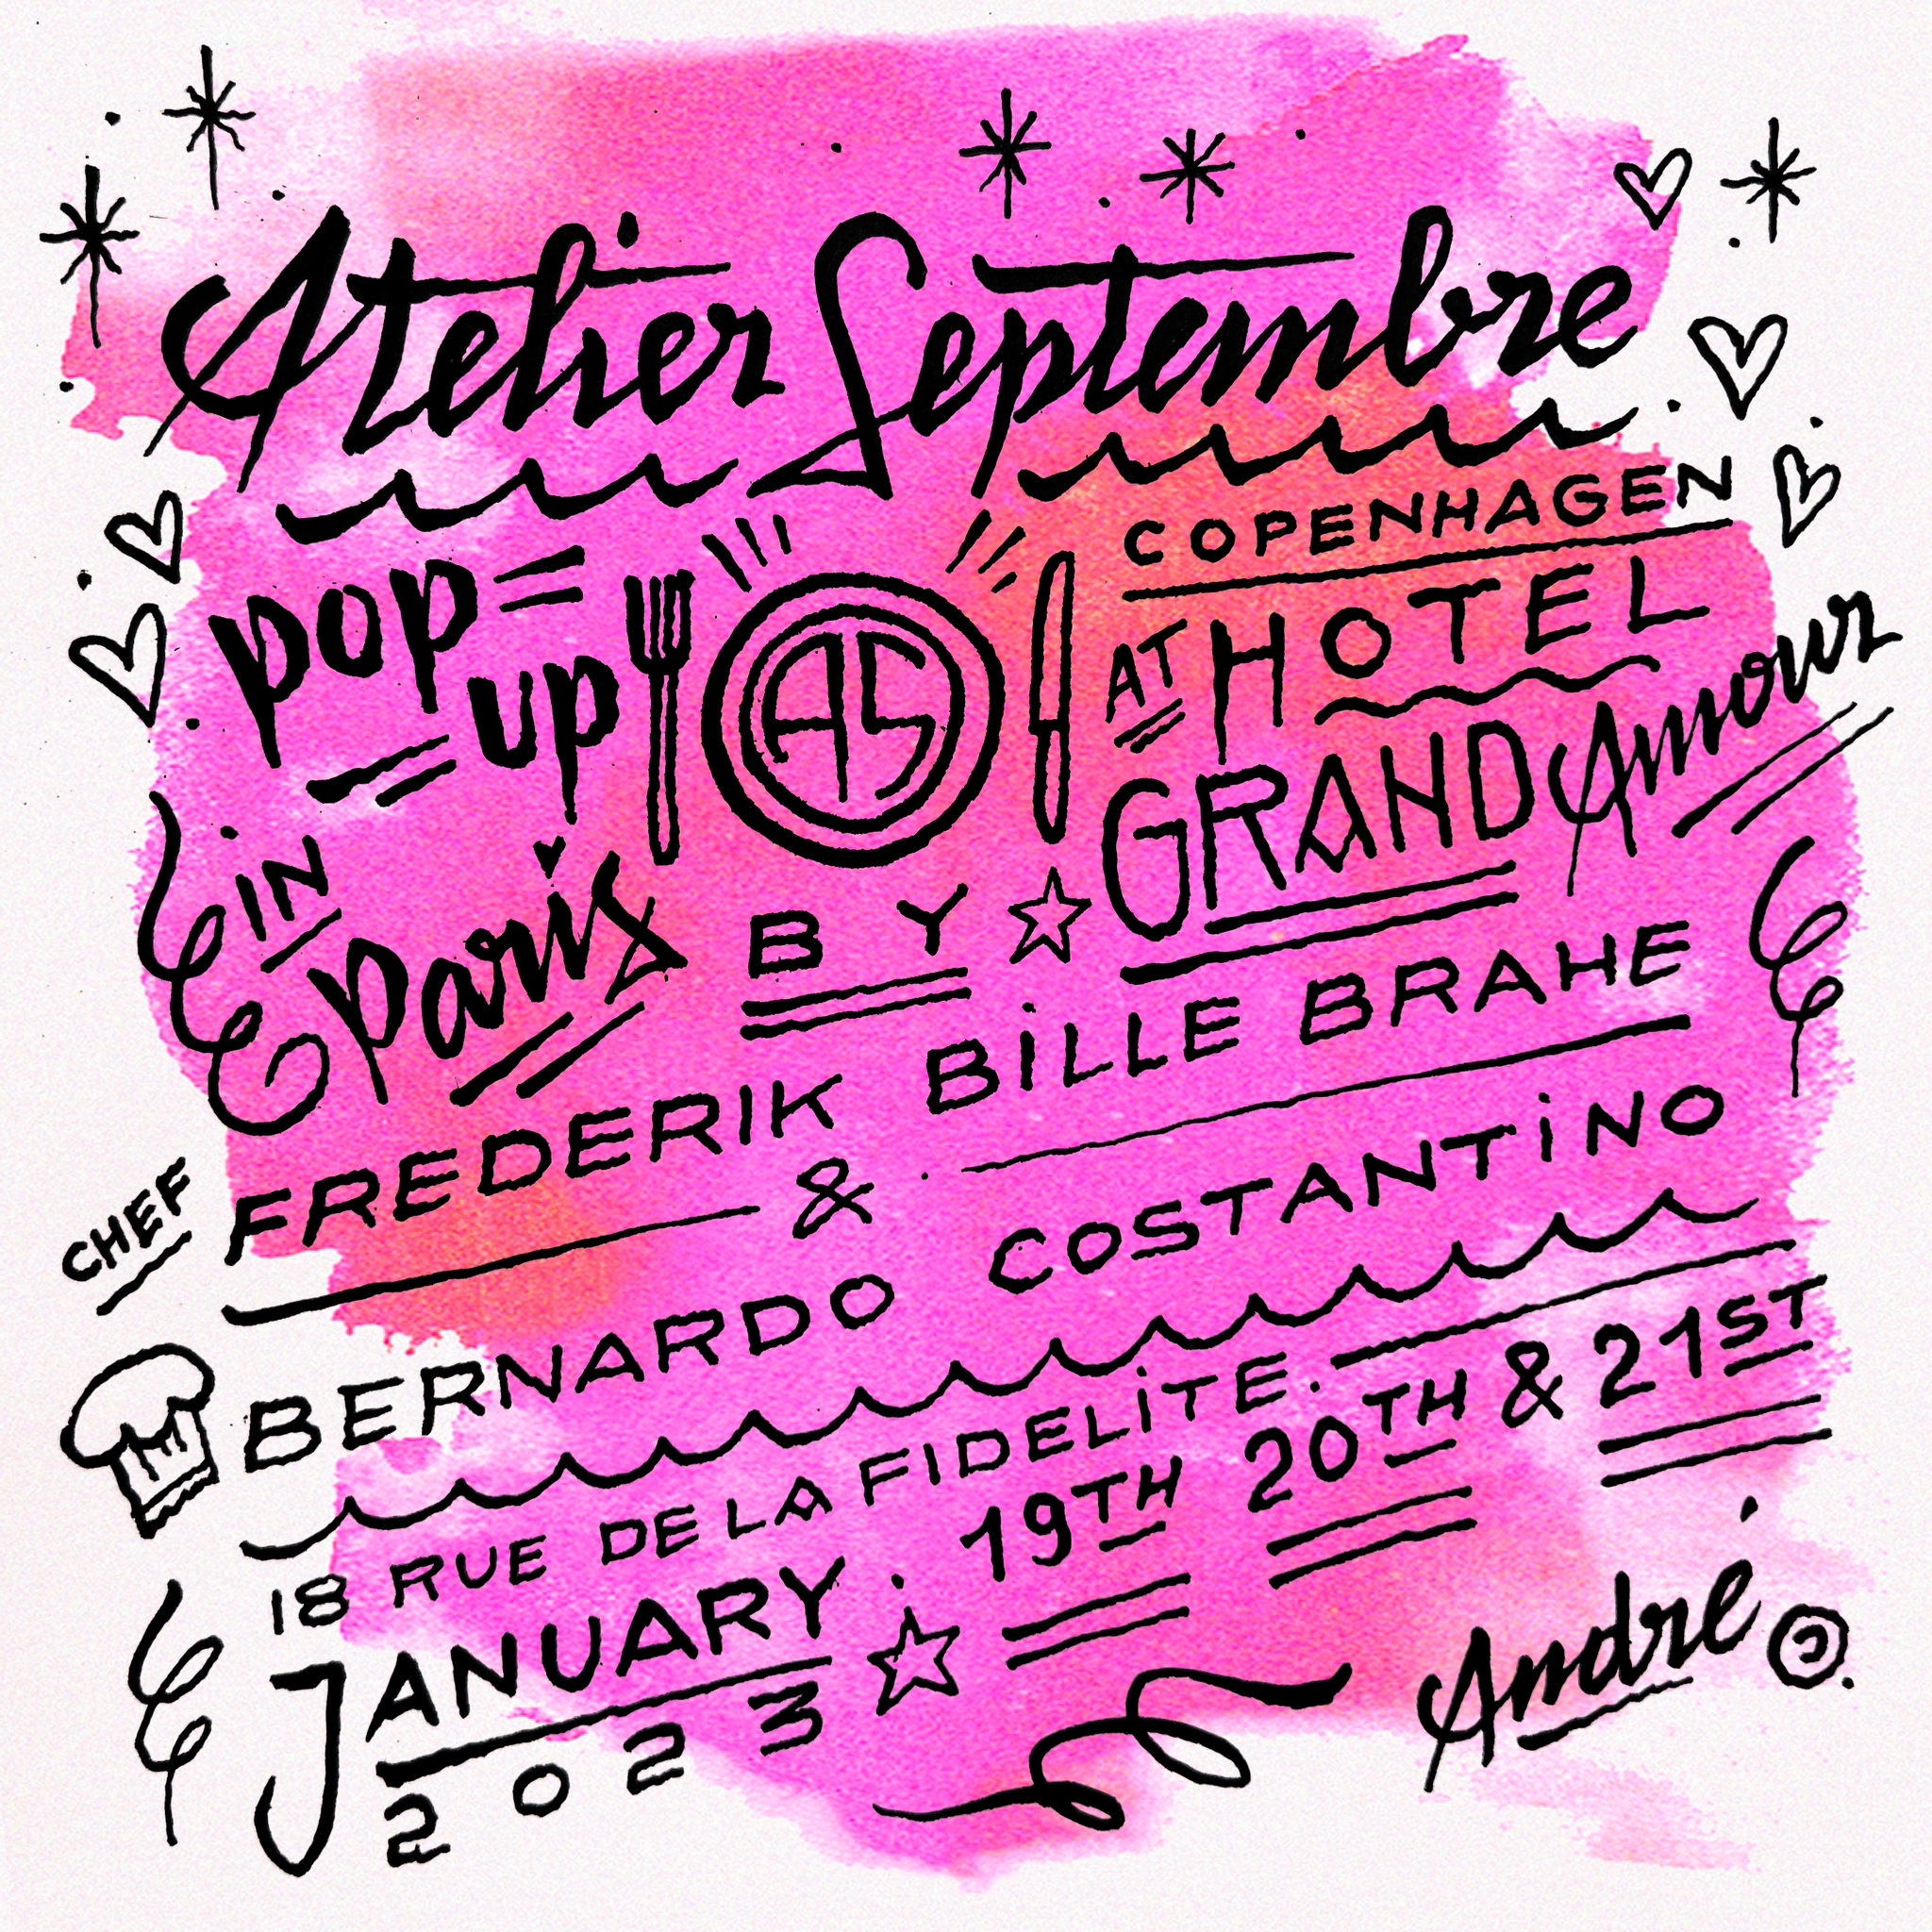 Atelier Septembre
COPENHAGEN
POP-UP
AS
AT HOTEL
GRAND Amour
IN
Paris
BY
CHEF
FREDERIK BILLE BRAHE
&
BERNARDO COSTANTINO
18 RUE DE LA FIDELITE.
JANUARY 19TH 20TH & 21ST
2023
André